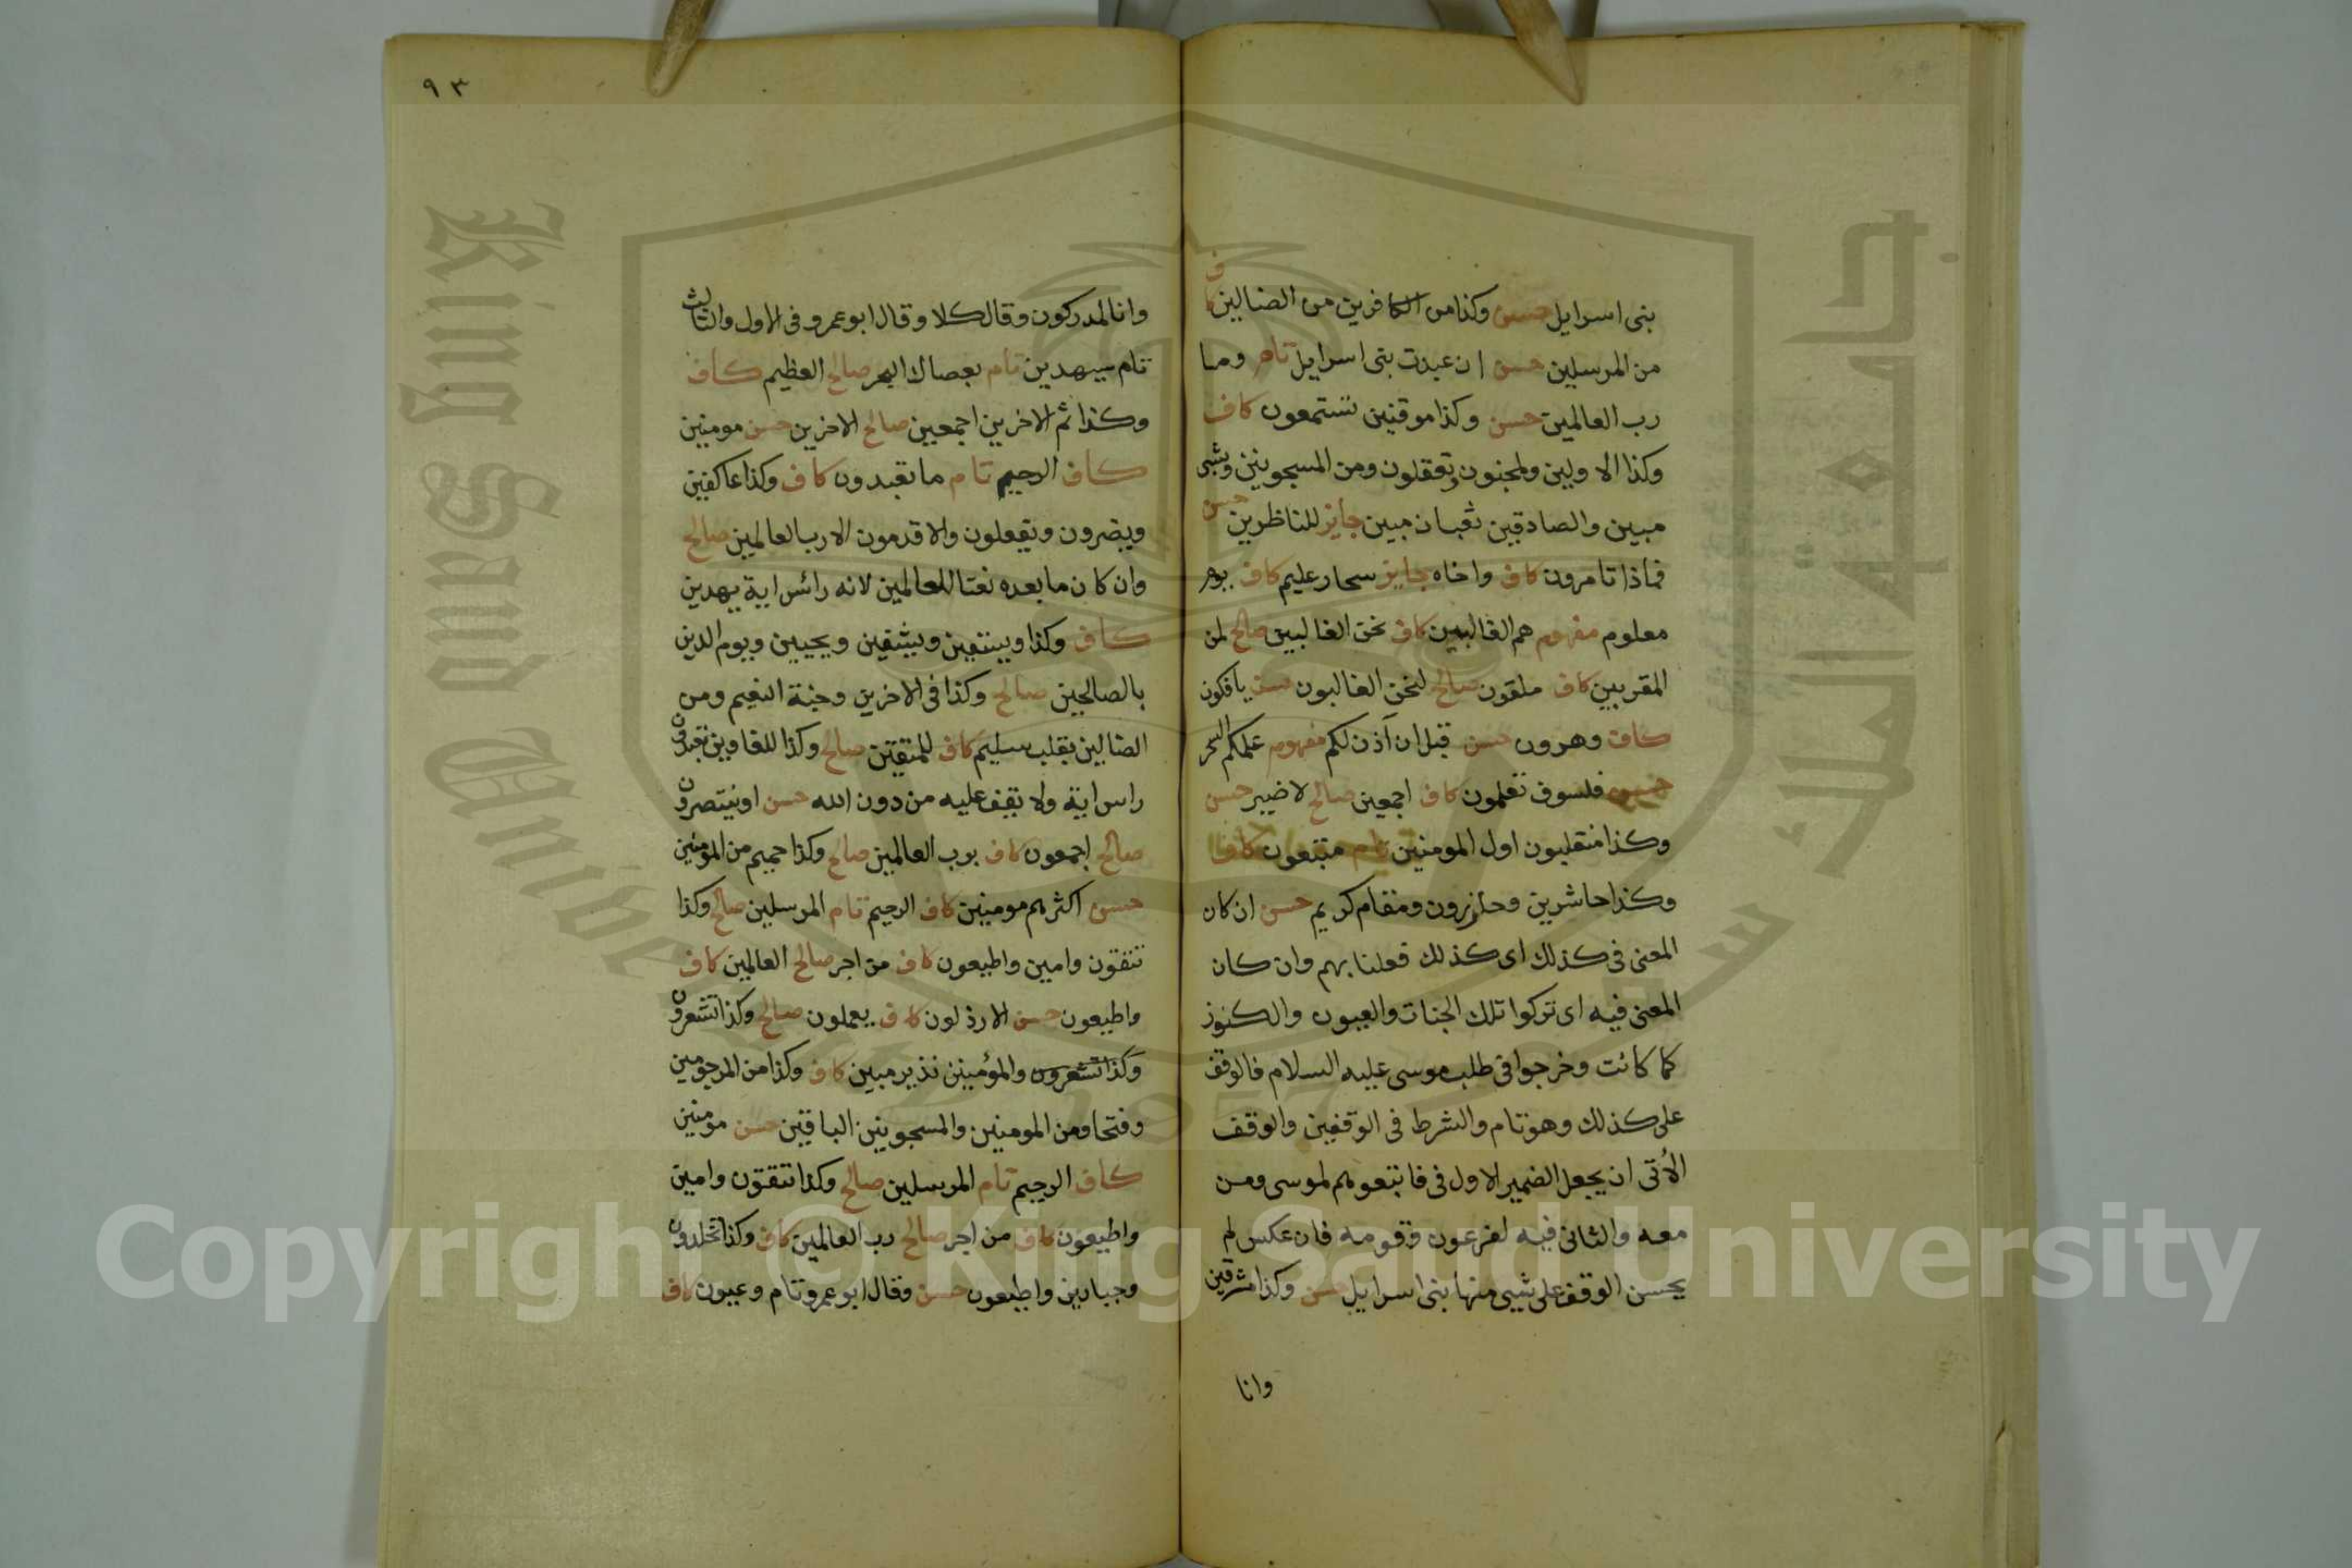 بنى اسرايل حسن وكذا من الكافرين من الضالين كاف
من المرسلين حسن ان عبدت بنى اسرايل تام وما
رب العالمين حسن وكذا موقنين تستمعون كاف
وكذا الاولين ولمجنون وتعقلون ومن المسجونين وبشى
مبين والصادقين ثعبان مبين جايز للناظرين حسن
فماذا تامرون كاف واخاه جايز سحار عليم كاف يوم
معلوم مفهوم هم الغالبين كاف نحن الغالبين صالح لمن
المقربين كاف ملقون صالح لنحن الغالبون حسن يافكون
كاف وهرون حسن قبل ان آذن لكم مفهوم علمكم السحر
حسن فلسوف تعلمون كاف اجمعين صالح لا ضير حسن
وكذا منقلبون اول المومنين تام متبعون كاف
وكذا حاشرين وحاذرون ومقام كريم حسن ان كان
المعنى فى كذلك اى كذلك فعلنا بهم وان كان
المعنى فيه اى تركوا تلك الجنات والعيون والكنوز
كما كانت وخرجوا فى طلب موسى عليه السلام فالوقف
على كذلك وهو تام والشرط فى الوقفين والوقف
الآتى ان يجعل الضمير الاول فى فاتبعوهم لموسى ومن
معه والثانى فيه لفرعون وقومه فان عكس لم
يحسن الوقف على شيى منها بنى اسرايل حسن وكذا مشرقين
وانا
٩٣
وانا لمدركون وقال كلا وقال ابو عمرو فى الاول والثالث
تام سيهدين تام بعصاك البحر صالح العظيم كاف
وكذا ثم الاخرين اجمعين صالح الاخرين حسن مومنين
كاف الرحيم تام ما تعبدون كاف وكذا عاكفين
ويضرون ويفعلون والاقدمون الا رب العالمين صالح
وان كان ما بعده نعتا للعالمين لانه رائس اية يهدين
كاف وكذا ويسقين ويشفين ويحيين ويوم الدين
بالصالحين صالح وكذا فى الاخرين وجنة النعيم ومن
الضالين بقلب سليم كاف للمتقين صالح وكذا للغاوين تعبدون
راس اية ولا يقف عليه من دون الله حسن او ينتصرون
صالح اجمعون كاف برب العالمين صالح وكذا حميم من المؤمنين
حسن اكثرهم مومنين كاف الرحيم تام المرسلين صالح وكذا
تتقون وامين واطيعون كاف من اجر صالح العالمين كاف
واطيعون حسن الارذلون كاف يعملون صالح وكذا تشعرون
وكذا تشعرون والمؤمنين نذير مبين كاف وكذا من المرجومين
وفتحا ومن المومنين والمسجونين الباقين حسن مومنين
كاف الرحيم تام المرسلين صالح وكذا تتقون وامين
واطيعون كاف من اجر صالح رب العالمين كاف وكذا تخلدون
وجبارين واطيعون حسن وقال ابو عمرو تام وعيون كاف
King Saud Unive
جامعة الملك س
1957
Copyright © King Saud University